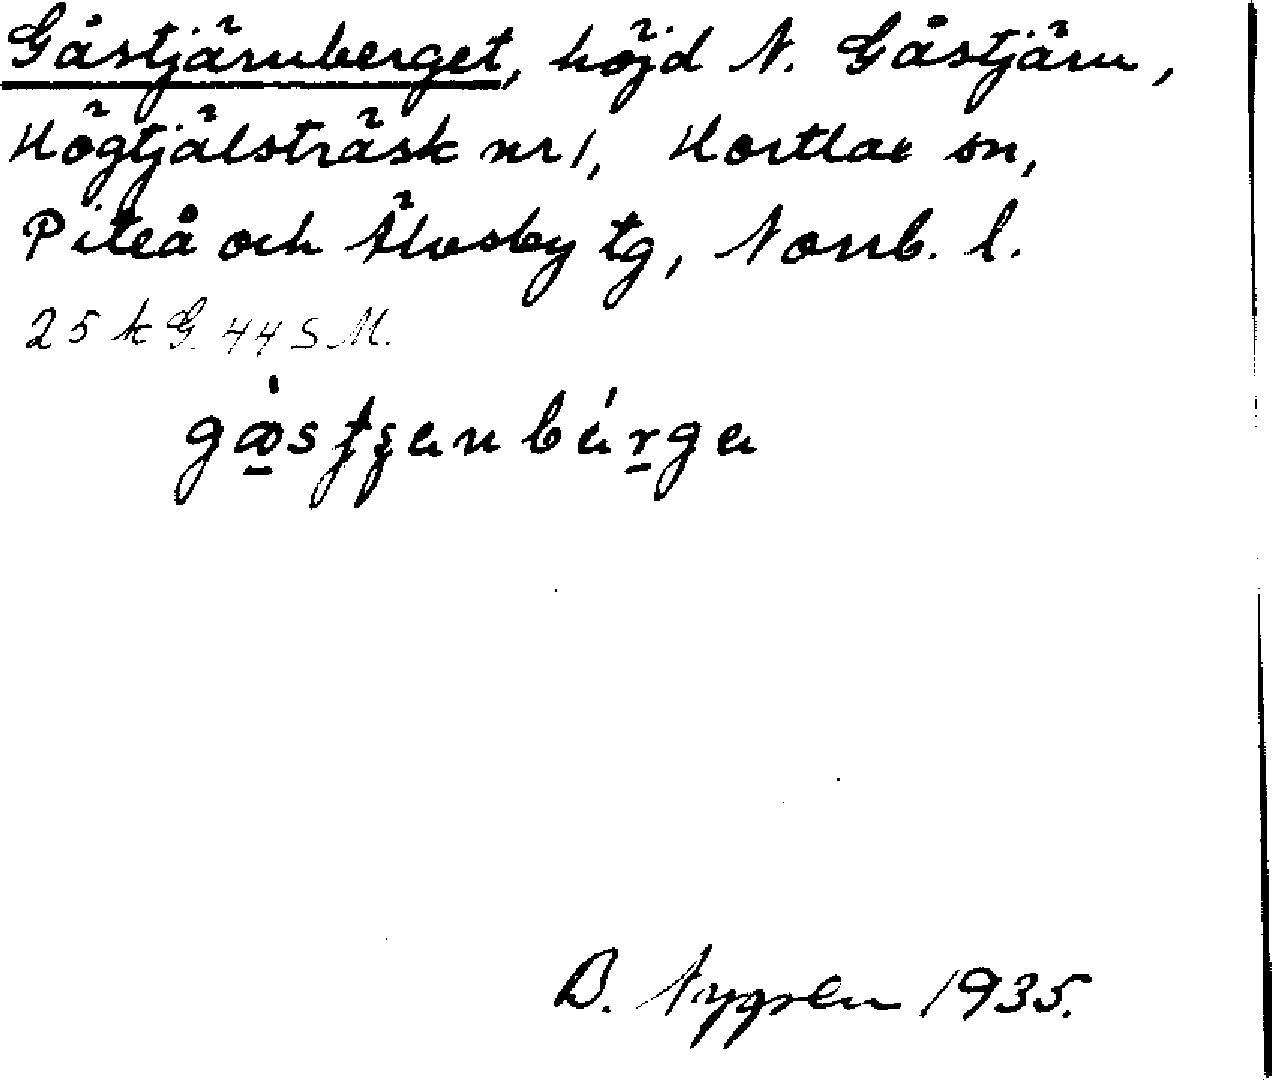 Gåstjärnberget, höjd N. Gåstjärn,
Högtjälsträsk nr 1, Hortlax sn,
Piteå och Älvsby tg, Norrb. l.
25 k G. 44 S M.
B. Nygren 1935.